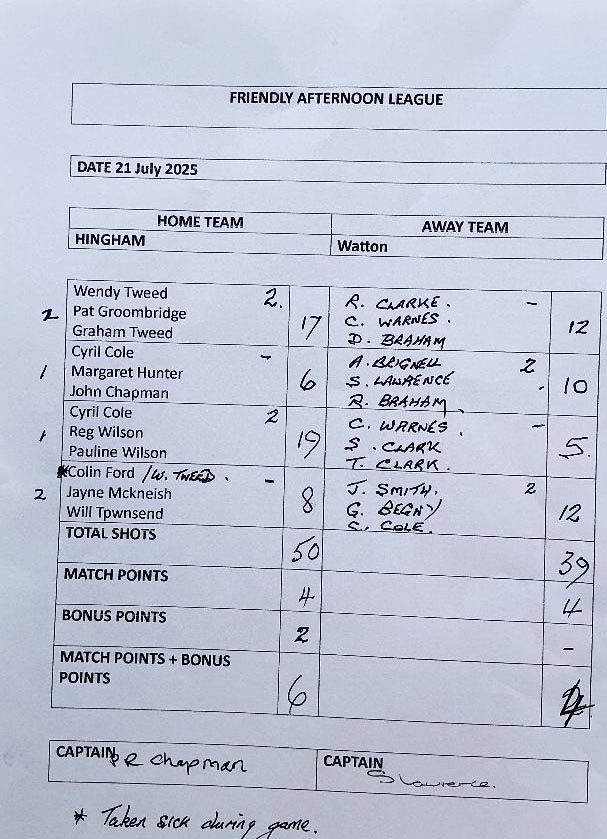 FRIENDLY AFTERNOON LEAGUE
DATE 21 July 2025
HOME TEAM AWAY TEAM
HINGHAM Watton
Wendy Tweed 2. R. CLARKE. -
2 Pat Groombridge 17 C. WARNES. 12
Graham Tweed D. BRAHAM
Cyril Cole - A. BRIGNELL 2
1 Margaret Hunter 6 S. LAWRENCE 10
John Chapman R. BRAHAM
Cyril Cole 2 C. WARNES. -
1 Reg Wilson 19 S. CLARK 5.
Pauline Wilson T. CLARK.
*Colin Ford /W. TWEED. - J. SMITH. 2
2 Jayne Mckneish 8 G. BEGNY 12
Will Tpwnsend C. COLE.
TOTAL SHOTS 50 39
MATCH POINTS 4 4
BONUS POINTS 2 -
MATCH POINTS + BONUS
POINTS 6 4
CAPTAIN R Chapman CAPTAIN S Lawrence.
* Taken sick during game.